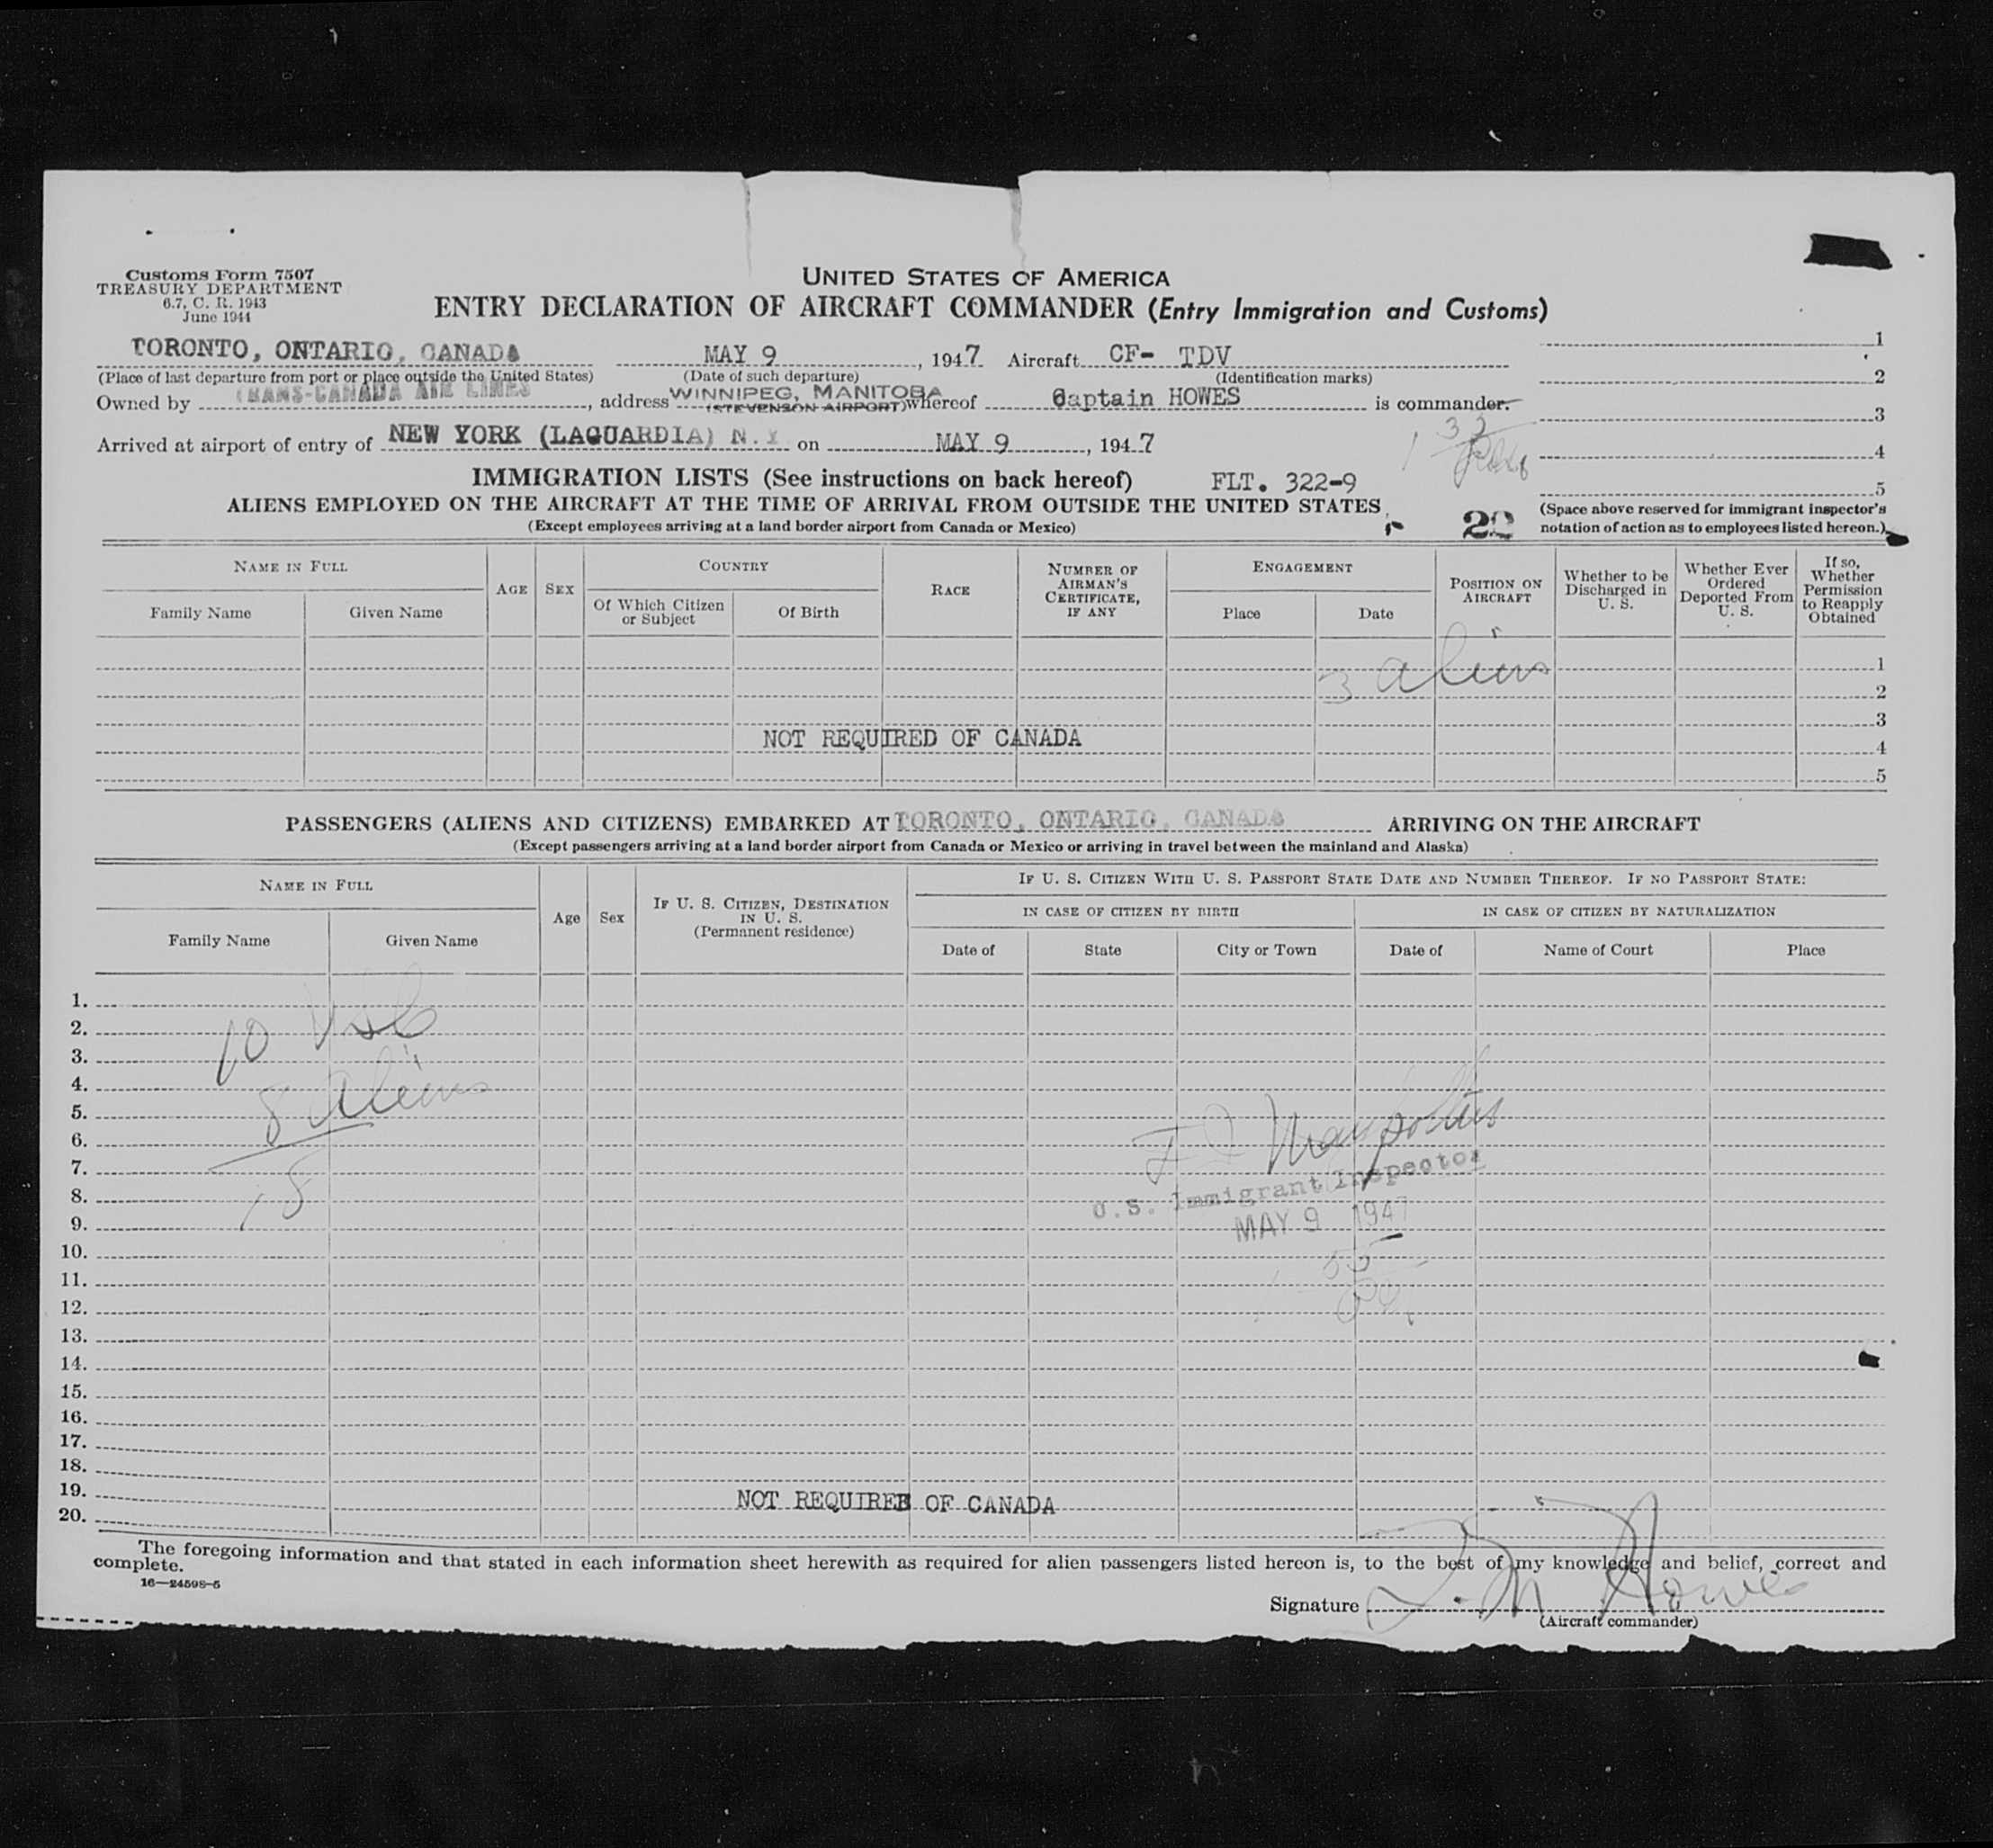 Customs Form 7507
TREASURY DEPARTMENT
6.7, C. R. 1943
June 1944
UNITED STATES OF AMERICA
ENTRY DECLARATION OF AIRCRAFT COMMANDER (Entry Immigration and Customs)
TORONTO, ONTARIO, CANADA MAY 9, 1947 Aircraft CF- TDV
(Place of last departure from port or place outside the United States) (Date of such departure) (Identification marks)
Owned by TRANS-CANADA AIR LINES, address WINNIPEG, MANITOBA (STEVENSON AIRPORT) whereof Captain HOWES is commander.
Arrived at airport of entry of NEW YORK (LAGUARDIA) N.Y. on MAY 9, 1947
1
2
3
4
5
IMMIGRATION LISTS (See instructions on back hereof) FLT. 322-9
ALIENS EMPLOYED ON THE AIRCRAFT AT THE TIME OF ARRIVAL FROM OUTSIDE THE UNITED STATES
(Except employees arriving at a land border airport from Canada or Mexico)
(Space above reserved for immigrant inspector's
notation of action as to employees listed hereon.)
NAME IN FULL
Family Name Given Name
AGE SEX
COUNTRY
Of Which Citizen or Subject Of Birth
RACE
NUMBER OF AIRMAN'S CERTIFICATE, IF ANY
ENGAGEMENT
Place Date
POSITION ON AIRCRAFT
Whether to be Discharged in U. S.
Whether Ever Ordered Deported From U. S.
If so, Whether Permission to Reapply Obtained
3 aliens
1
2
3
NOT REQUIRED OF CANADA
4
5
PASSENGERS (ALIENS AND CITIZENS) EMBARKED AT TORONTO, ONTARIO, CANADA ARRIVING ON THE AIRCRAFT
(Except passengers arriving at a land border airport from Canada or Mexico or arriving in travel between the mainland and Alaska)
NAME IN FULL
Family Name Given Name
Age Sex
IF U. S. CITIZEN, DESTINATION IN U. S. (Permanent residence)
IF U. S. CITIZEN WITH U. S. PASSPORT STATE DATE AND NUMBER THEREOF. IF NO PASSPORT STATE:
IN CASE OF CITIZEN BY BIRTH IN CASE OF CITIZEN BY NATURALIZATION
Date of State City or Town Date of Name of Court Place
1.
2. 10
3.
4.
5. 8 aliens
6.
7.
8. 18
U.S. Immigrant Inspector
9.
MAY 9 1947
10.
11.
12.
13.
14.
15.
16.
17.
18.
19.
NOT REQUIRED OF CANADA
20.
The foregoing information and that stated in each information sheet herewith as required for alien passengers listed hereon is, to the best of my knowledge and belief, correct and
complete.
16—24598-5
Signature
(Aircraft commander)